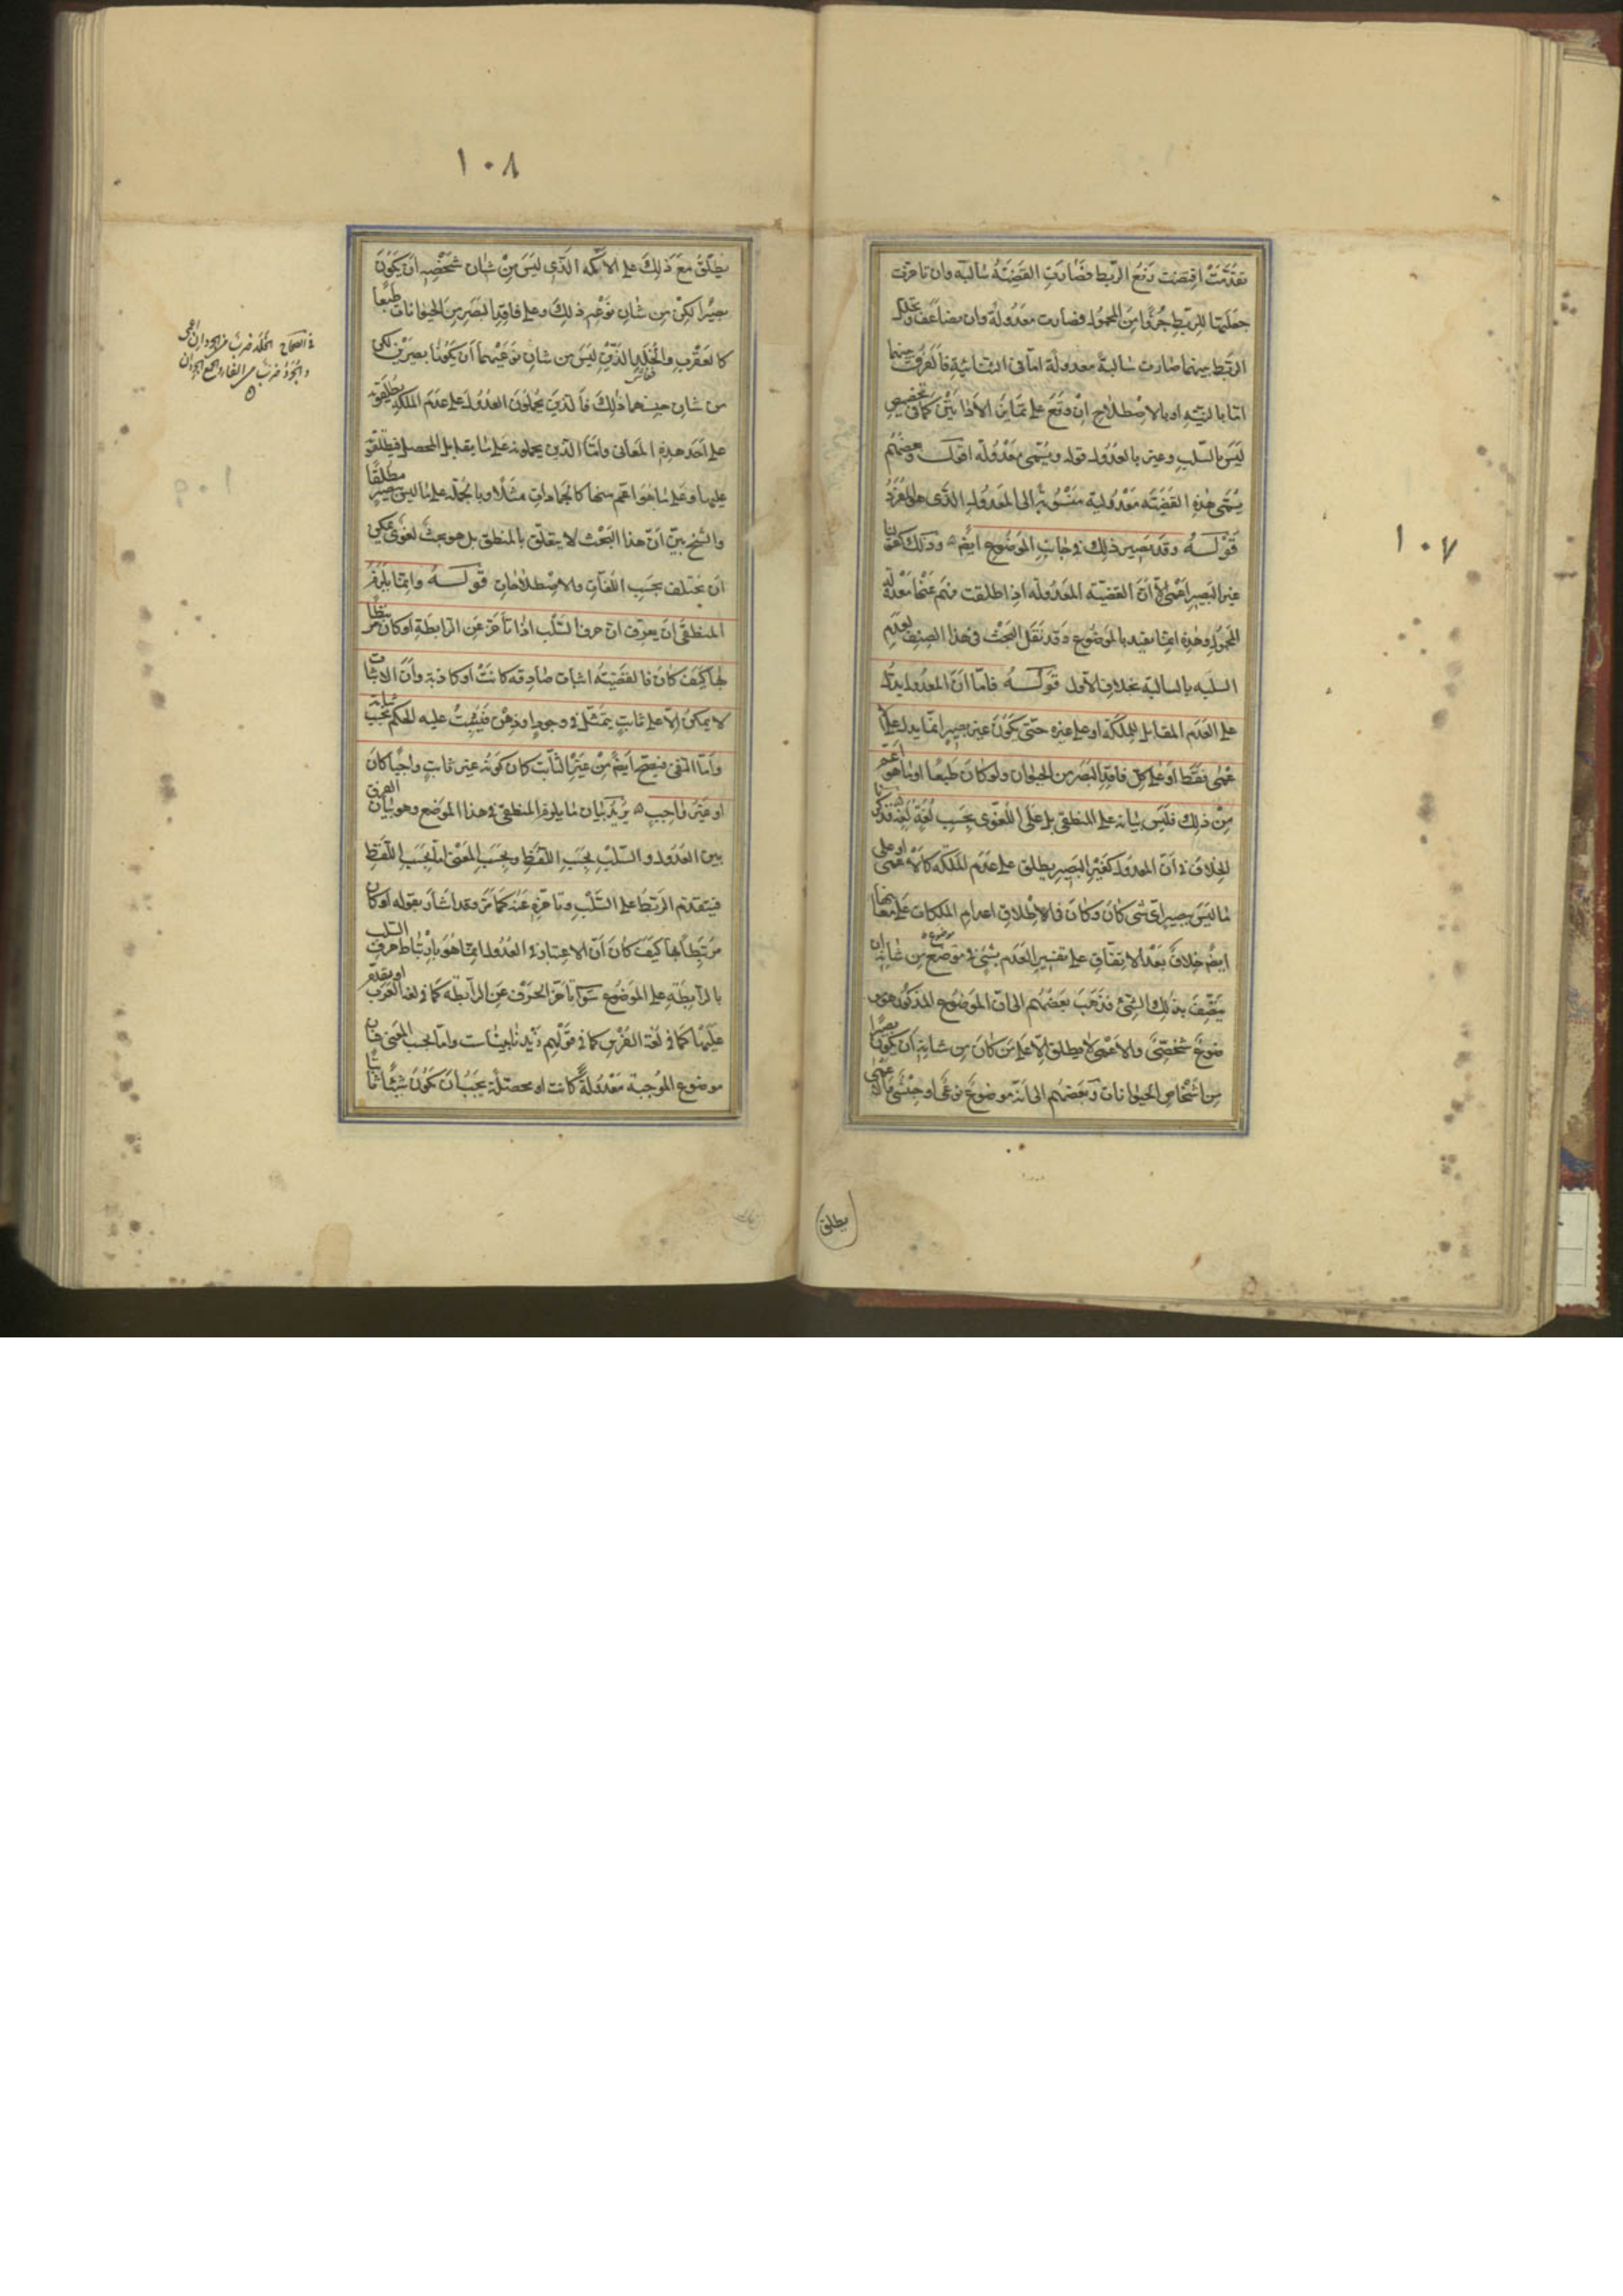 ١٠٧
تقدمت اقتضت رفع الربط فصارت القضية سالبة وان تاخرت
جعلتها للربط جزؤا من المحمول فصارت معدولة وان تضاعف وتخلل
الربط بينهما صارت سالبة معدولة اما في الثنائية فالفرق بينهما
اما بالنية او بالاصطلاح ان وقع على تمايز الاداتين كما في تخصيص
ليس بالسلب وغير بالعدول قوله ويسمى معدولة اقول وبعضهم
يسمى هذه القضية معدولية منسوبة الى المعدول الذي هو المفرد
قوله وقد يصير ذلك في جانب الموضوع ايضا وذلك كقولنا
غير البصير امي لان القضية المعدولة اذا اطلقت فهم عنها معدولة
المحمول وهذه انما تقيد بالموضوع وقد نقل البحث في هذا الصنف لعدم
التباسه بالسالبة بخلاف الاول قوله فاما ان المعدول يدل
على العدم المقابل للملكة او على غيره حتى يكون غير بصير انما يدل على
عمى فقط او على كل فاقد البصر من الحيوان ولو كان طبعا او ما هو اعم
من ذلك فليس بيانه على المنطقي بل على اللغوي بحسب لغة لغة
الخلاف في ان المعدول كغير البصير يطلق على عدم الملكة كالاعمى او على
ما ليس ببصير اي شيء كان وكان في اطلاق اعدام الملكات على معانيها
ايضا خلاف بعد الاتفاق على تفسير العدم بشيء في موضوع من شانه ان
يتصف بذلك الشيء فذهب بعضهم الى ان الموضوع المذكور هو
موضوع شخصي والاعمى لا يطلق الا على من كان من شانه ان يكون بصيرا
من اشخاص الحيوانات وبعضهم الى انه موضوع نوعي او جنسي
مطلق
١٠٨
يطلق مع ذلك على الاكمه الذي ليس من شان شخصه ان يكون
بصيرا لكن من شان نوعه ذلك وعلى فاقد البصر من الحيوانات طبعا
كالعقرب والخلد الذين ليس من شان نوعيهما ان يكونا بصيرين لكن
من شان جنسهما ذلك فالذين يحملون العدول على عدم الملكة يطلقونه
على احد هذه المعاني واما الذين يحملونه على ما يقابل المحصل فيطلقونه
عليها وعلى ما هو اعم منها كالجمادات مثلا وبالجملة على ما ليس ببصير مطلقا
والشيخ بين ان هذا البحث لا يتعلق بالمنطق بل هو بحث لغوي يمكن
ان يختلف بحسب اللغات والاصطلاحات قوله وانما يلزم
المنطقي ان يعرف ان حرف السلب اذا تاخر عن الرابطة او كان مرتبطا
بها كيف كان فالقضية اثبات صادقة كانت او كاذبة وان الاثبات
لا يمكن الا على ثابت يتمثل في وجود او ذهن فيثبت عليه الحكم بحسب ثباته
واما النفي فيصح ايضا من غير الثابت كان كونه غير ثابت واجبا كان
او غير واجب يريد بيان ما يلزم المنطقي في هذا الموضع وهو بيان الفرق
بين العدول والسلب بحسب اللفظ وبحسب المعنى اما بحسب اللفظ
فيتقدم الربط على السلب وتاخره عنه كما مر وقد اشار بقوله او كان
مرتبطا بها كيف كان ان الاعتبار في العدول انما هو بارتباط حرف السلب
بالرابطة على الموضوع سواء تاخر الحرف عن الرابطة كما في لغة العرب او يقدم
عليها كما في لغة الفرس كما في قولهم زيد نابيناست واما بحسب المعنى فان
موضوع الموجبة معدولة كانت او محصلة يجب ان يكون شيئا ثابتا
في الصحاح الخلد ضرب من الجرذان اعمى
والجرذ ضرب من الفار والجمع الجرذان